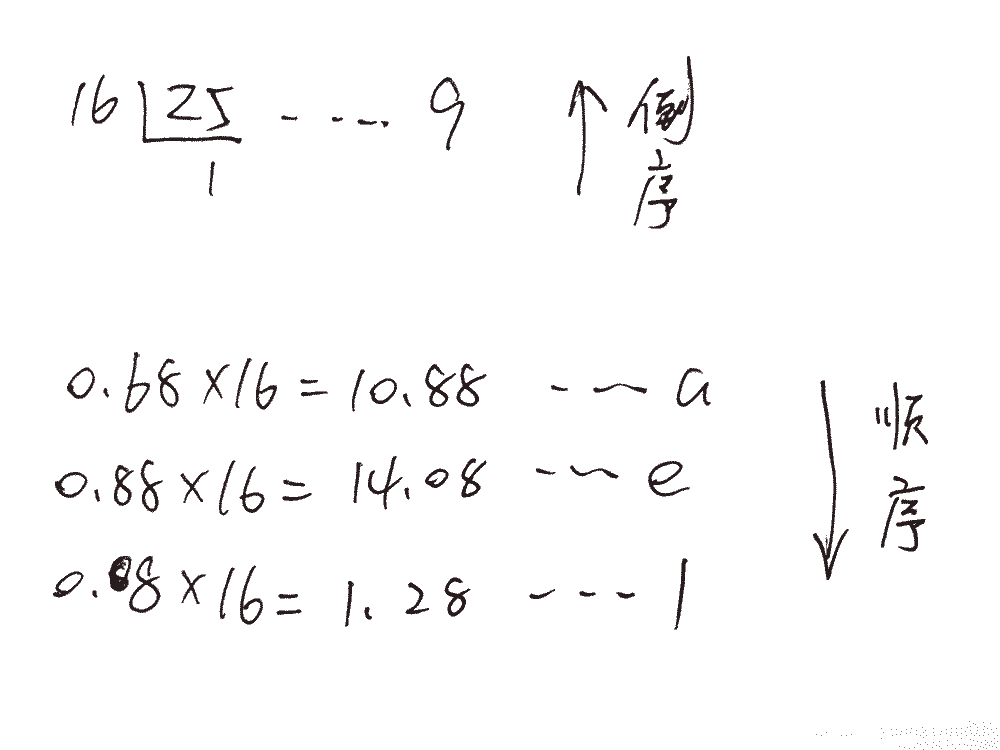 16 25 ---- 9 ↑ 倒
1 序
0.68×16=10.88 --- a
0.88×16=14.08 --- e 顺
0.08×16=1.28 --- 1 序